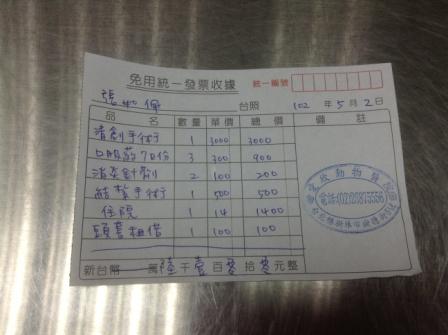 免用統一發票收據
統一編號
張 台照 102 年 5 月 2 日
品 名 數量 單價 總價 備 註
清創手術 1 3000 3000
口服葯7日份 3 300 900
消炎針劑 2 100 200
結紮手術 1 500 500
住院 1 14 1400
頭套租借 1 100 100
動物醫院
電話:(02)
新台幣 萬 陸 千 壹 百 零 拾 零 元整